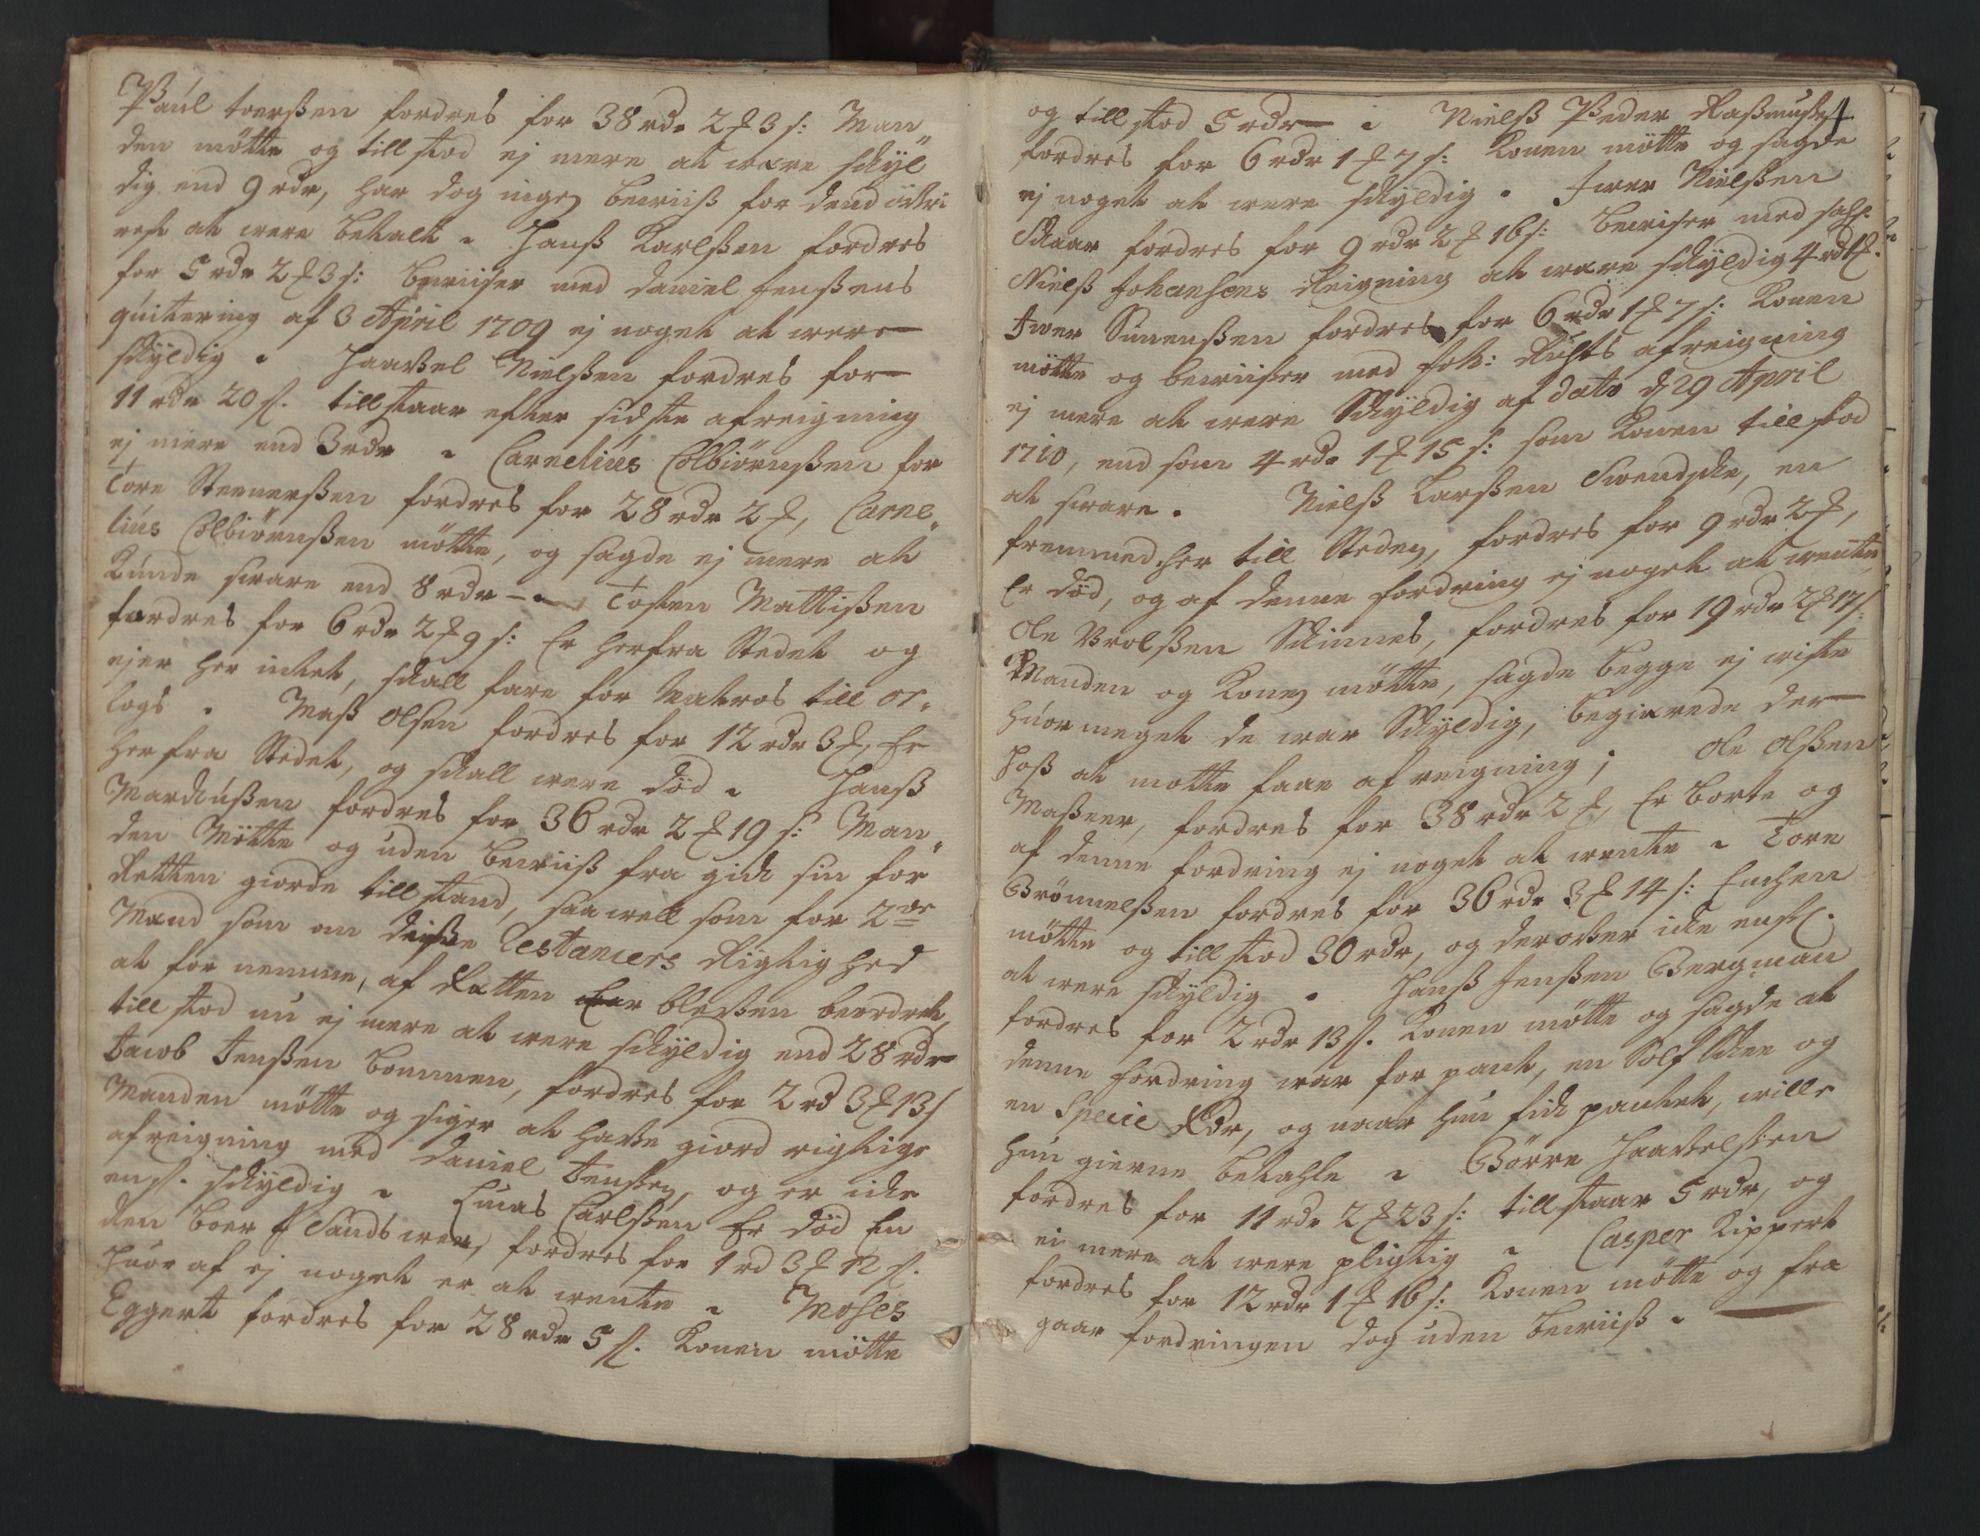 Paul toerßen fordres for 38 rdr 2 ℔ 3 s: Man„
den mötte og till stod ej mere at were skÿl„
dig end 9 rdr, har dog ingen beviiß for dend
rest at were betalt. Hanß Karlßen fordres
for 5 rdr 2 ℔ 3 s: beviiser med Daniel Jenßens
quitering af 3 April 1709 ej noget at were
skÿldig. Haaßel Nielßen fordres for
11 rdr 20 s. till staar efter sidste afreigning
ej mere end 3 rdr. Carnelius Colbiörnßen for
Tore Steenerßen fordres for 28 rdr 2 ℔, Carne„
lius Colbiörnßen mötte, og sagde ej mere at
kunde svare end 8 rdr. Tosten Mattißen
fordres for 6 rdr 2 ℔ 9 s: Er herfra Stedet og
ejer her intet, skall fare for Matros till or„
logs. Maß Olsen fordres for 12 rdr 3 ℔, Er
her fra Stedet, og skall were död. Hanß
Mardkußen fordres for 36 rdr 2 ℔ 19 s: Man„
den Mötte og uden beviiß fra gick sin for
Retten giorde till stand, saa well som for 2de
Mand som om diße Restancers Rigtighed
at for nemme, af Retten bleßen beordret,
till stod nu ej mere at were skÿldig end 28 rdr
Jacob Jenßen Bommen, fordres for 2 rd 3 ℔ 13 s
Manden mötte og siger at haße giord rigtige
afreigning med Daniel Jenßen, og er icke
en s. skÿldig. Lucas Carlßen Er död En
den boer Sandswer, fordres for 1 rd 3 ℔ 12 s.
huor af ej noget er at wente. Moses
Eggert fordres for 28 rdr 5 s. Konen mötte
4
og till stod 5 rdr. Nielß Peder Raßmußen
fordres for 6 rdr 1 ℔ 7 s: Konen mötte og sagde
ej noget at were skÿldig. Iwer Nielßen
Skaar fordres for 9 rdr 2 ℔ 16 s: beviser med sal:
Nielß Johansens Reigning at were skÿldig 4 rd 1 ℔.
Iwer Simenßen fordres for 6 rdr 1 ℔ 7 s: Konen
mötte og beviißer med Joh: afreigning
ej mere at were Skÿldig af dato d 29 April
1710, end som 4 rdr 1 ℔ 15 s: som Konen till stod
at svare. Nielß Larßen Swendske, en
fremmed her till Steden, fordres for 9 rdr 2 ℔,
Er död, og af denne fordring ej noget at wente
Ole Brolßen Skinnes, fordres for 19 rdr 2 ℔ 17 s.
Manden og Konen mötte, sagde begge ej wiste
huor meget de war Skÿldig, begierede der
hoß at motte faae afreigning; Ole Olßen
Maßeer, fordres for 38 rdr 2 ℔, Er borte og
af denne fordring ej noget at wente. Tore
Brönnelßen fordres for 36 rdr 3 ℔ 14 s: Enchen
mötte og till stod 30 rdr, og deroßer icke en s.
at were skÿldig. Hanß Jenßen Bergman
fordres for 2 rdr 13 s. Konen mötte og sagde at
denne fordring war for pant, en Sölf Skee og
en Specie Rdr, og naar hun fick pantet, wille
hun gierne betahle. Börre Haaßelßen
fordres for 11 rdr 2 ℔ 23 s: till staar 5 rdr, og
ei mere at were pligtig. Casper Kippert
fordres for 12 rdr 1 ℔ 16 s: Konen mötte og fra
gaar fordringen dog uden beviiß.